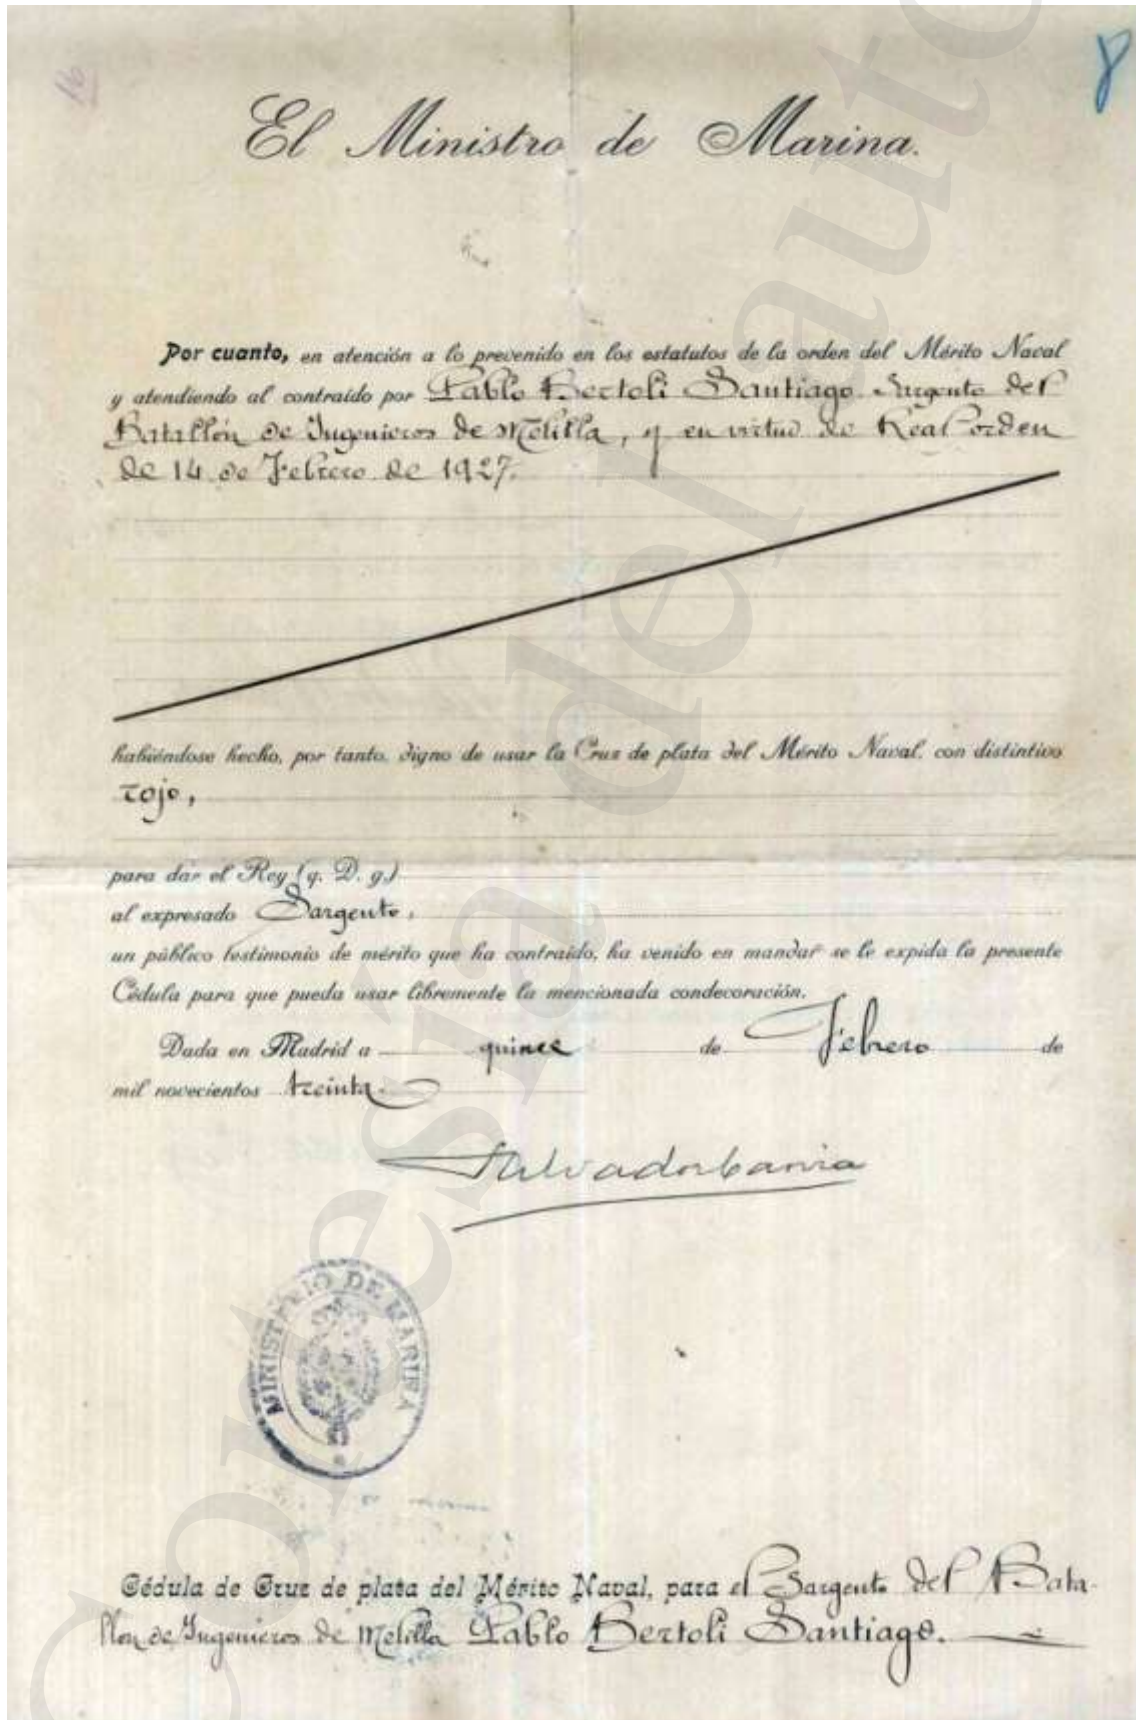 16
8
El Ministro de Marina.
Por cuanto, en atención a lo prevenido en los estatutos de la orden del Mérito Naval
y atendiendo al contraído por Pablo Bertoli Santiago Sargento del
Batallón de Ingenieros de Melilla, y en virtud de Real orden
de 14 de Febrero de 1927.
habiéndose hecho, por tanto, digno de usar la Cruz de plata del Mérito Naval, con distintivo
rojo,
para dar el Rey (q. D. g.)
al expresado Sargento,
un público testimonio de mérito que ha contraído, ha venido en mandar se le expida la presente
Cédula para que pueda usar libremente la mencionada condecoración.
Dada en Madrid a quince de Febrero de
mil novecientos treinta.
Salvador Carvia
MINISTERIO DE MARINA
Cédula de Cruz de plata del Mérito Naval, para el Sargento del Bata-
llon de Ingenieros de Melilla Pablo Bertoli Santiago.
Cortesía del auto